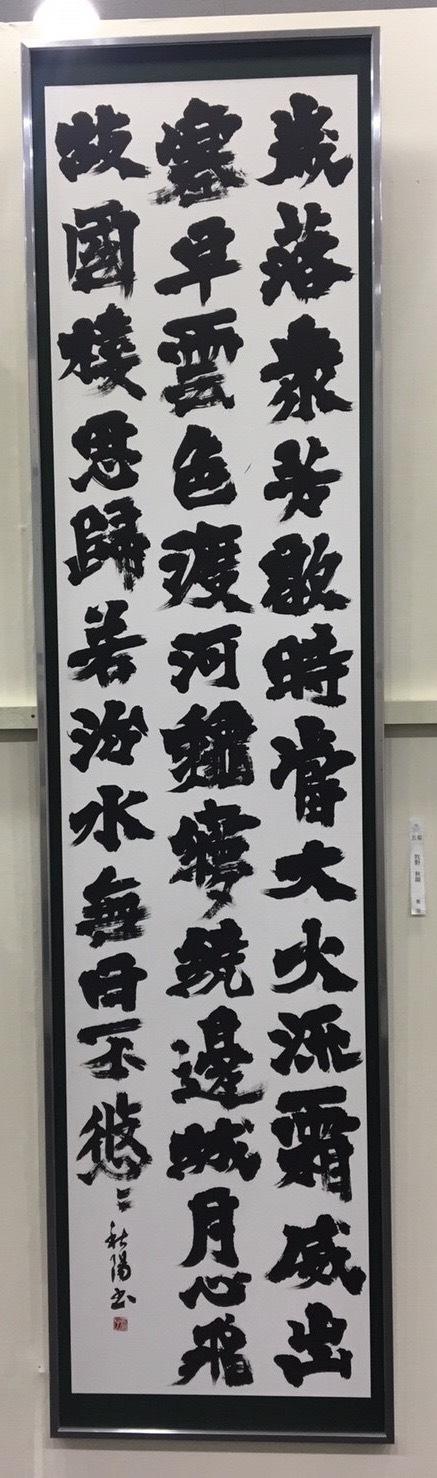 歳落衆芳歇時當大火流霜威出
塞早雲色渡河穐夢繞邊城月心飛
故國樓思歸若汾水無日不悠〻
秋陽書